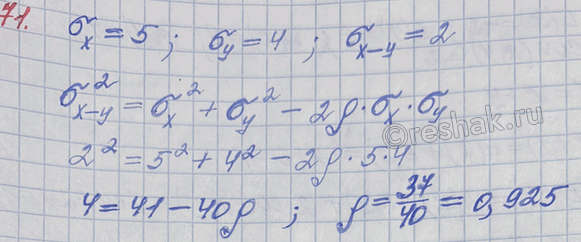 71. σ_x = 5 ; σ_y = 4 ; σ_{x-y} = 2
σ²_{x-y} = σ_x² + σ_y² - 2ρ·σ_x·σ_y
2² = 5² + 4² - 2ρ·5·4
4 = 41 - 40ρ ; ρ = 37/40 = 0,925
©reshak.ru